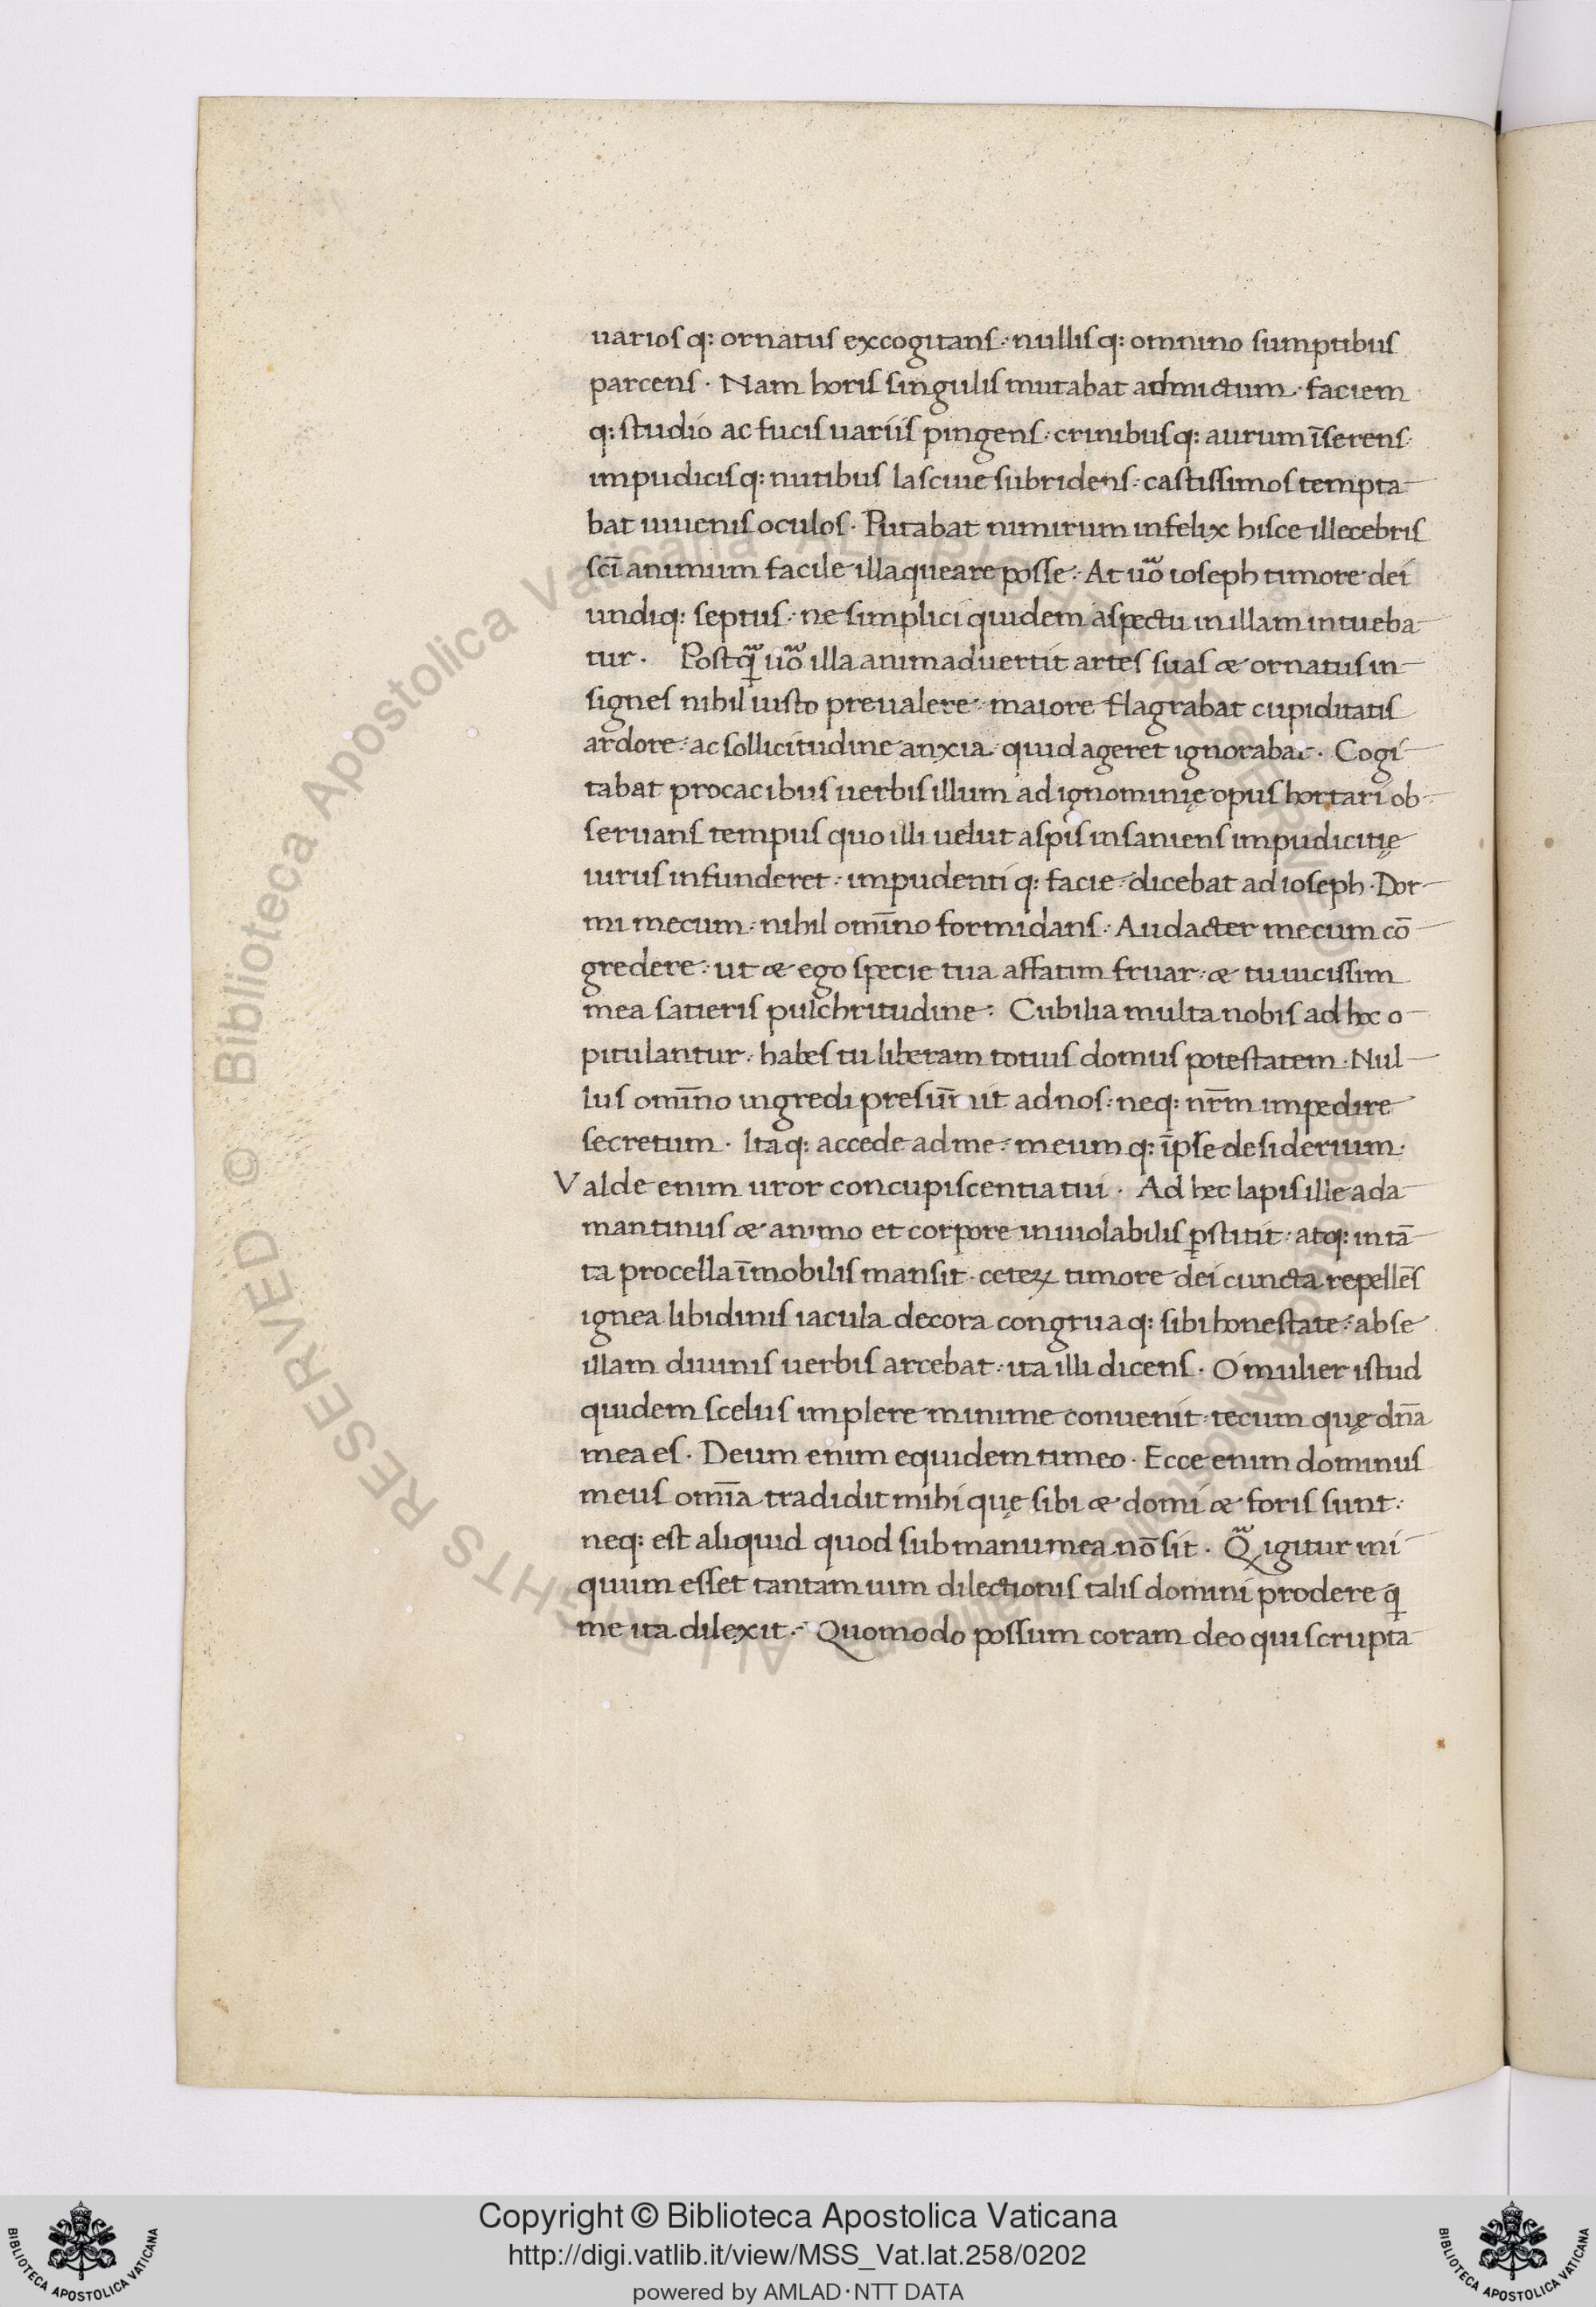 uarios q: ornatus excogitans · nullis q: omnino sumptibus
parcens · Nam horis singulis mutabat admictum · faciem
q: studio ac fucis uariis pingens · crinibus q: aurum īserens
impudicis q: nutibus lasciue subridens · castissimos tempta
bat iuuenis oculos · Putabat nimirum infelix hisce illecebris
sc̄i animum facile illaqueare posse · At uoᷓ ioseph timore dei
undiq: septus · ne simplici quidem aspectu in illam intueba
tur · Postqᷓ uoᷓ illa animaduertit artes suas æ ornatus in
signes nihil iusto preualere · maiore flagrabat cupiditatis
ardore · ac sollicitudine anxia · quid ageret ignorabat · Cogi
tabat procacibus uerbis illum ad ignominię opus hortari ob
seruans tempus quo illi uelut aspis insaniens impudicitię
uirus infunderet · impudenti q: facie · dicebat ad ioseph · Dor
mi mecum · nihil omīno formidans · Audacter mecum cō
gredere · ut æ ego specie tua affatim fruar · æ tu uicissim
mea satieris pulchritudine · Cubilia multa nobis ad hoc o
pitulantur · habes tu liberam totius domus potestatem · Nul
lus omīno ingredi presūmit ad nos · neq: nr̄m impedire
secretum · Itaq: accede ad me · meum q: īpse desiderium ·
Valde enim uror concupiscentia tui · Ad hec lapis ille ada
mantinus æ animo et corpore inuiolabilis ꝑstitit · atq: in tā
ta procella īmobilis mansit · ceteꝝ timore dei cuncta repellēs
ignea libidinis iacula decora congrua q: sibi honestate · ab se
illam diuinis uerbis arcebat · ita illi dicens · O mulier istud
quidem scelus implere minime conuenit · tecum quę dn̄a
mea es · Deum enim equidem timeo · Ecce enim dominus
meus omīa tradidit mihi quę sibi æ domi æ foris sunt ·
neq: est aliquid quod sub manu mea nō sit · Qᷓ igitur ini
quum esset tantam uim dilectionis talis domini prodere ꝗ
me ita dilexit · Quomodo possum coram deo qui scrupta
Copyright © Biblioteca Apostolica Vaticana
http://digi.vatlib.it/view/MSS_Vat.lat.258/0202
powered by AMLAD · NTT DATA